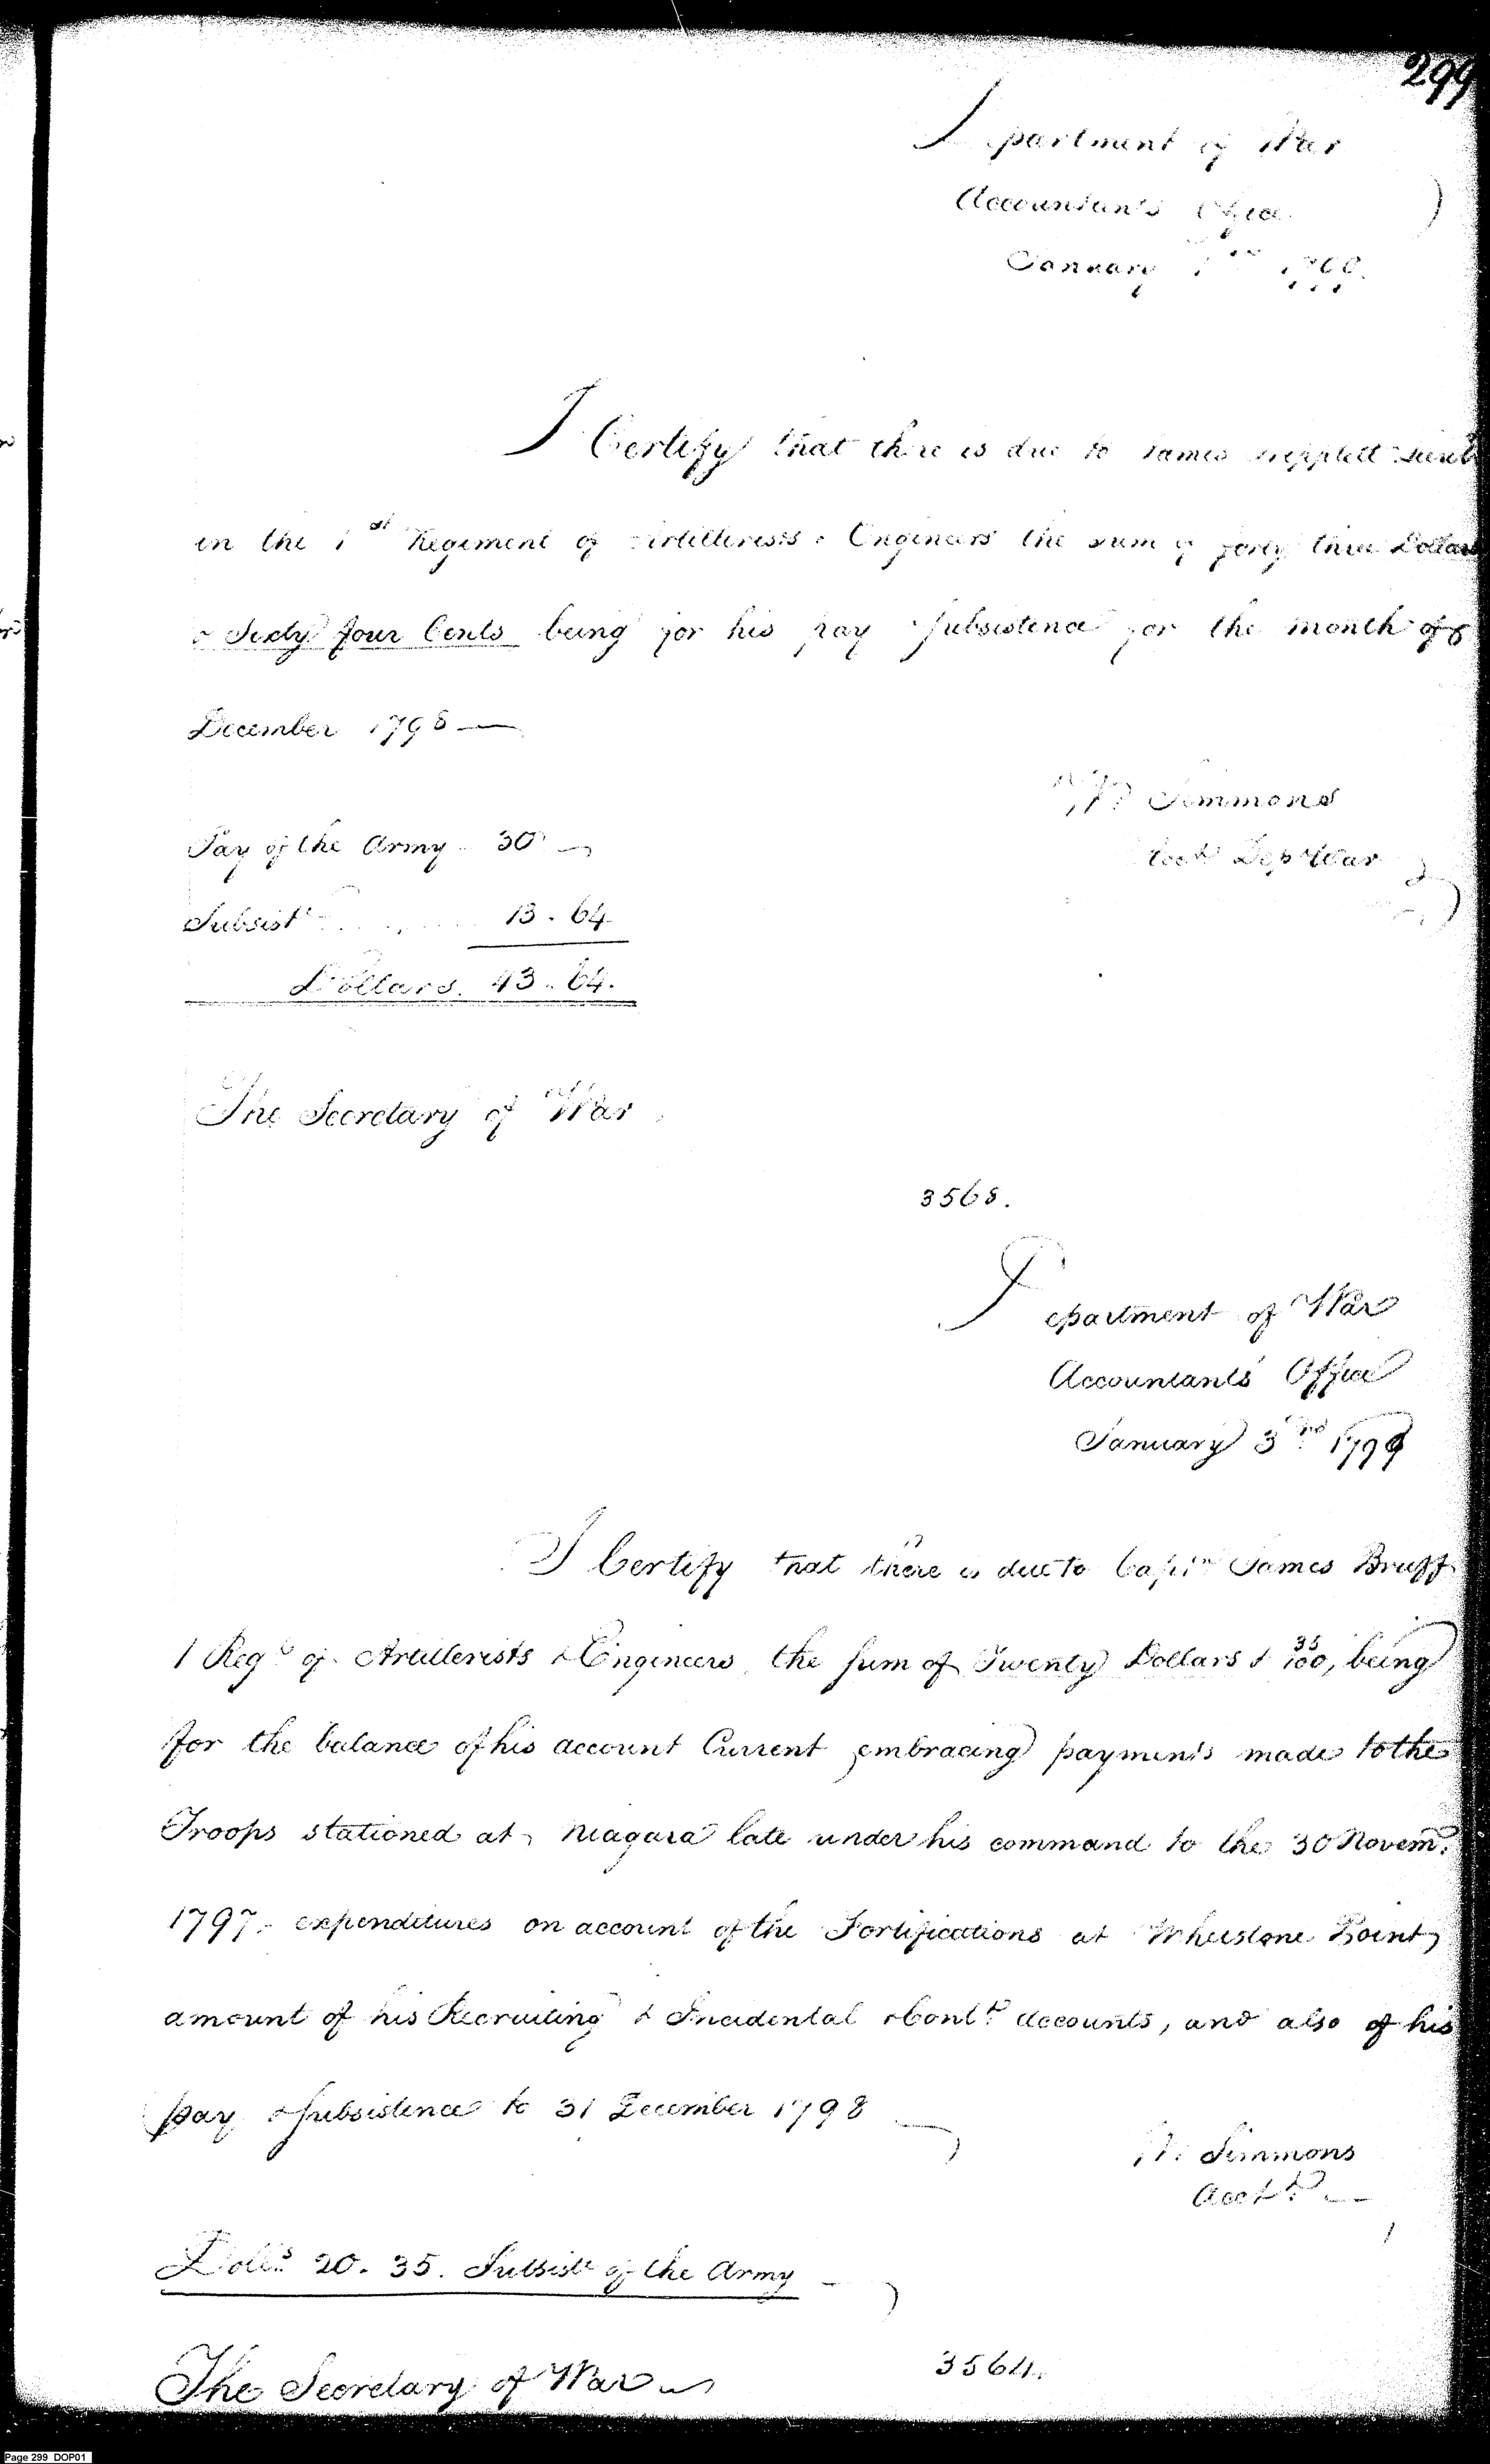 299
Department of War
Accountant's Office
January
I Certify that there is due to James Lieut
in the 1st Regiment of Artillerists & Engineers the sum of forty three Dollars
& Sixty four Cents being for his pay & Subsistence for the month of
December 1798 —
Wm Simmons
Acct Dep War
Pay of the Army . 30 —
Subsist . . . . 13 . 64
Dollars. 43 . 64.
The Secretary of War
3563.
Department of War
Accountants Office
January 3rd 1799
I Certify that there is due to Captn James Bruff
1 Regt of Artillerists & Engineers, the sum of Twenty Dollars & 35/100, being
for the balance of his account Current embracing payments made to the
Troops stationed at Niagara late under his command to the 30 Novemr.
1797. expenditures on account of the Fortifications at Whetstone Point,
amount of his Recruiting & Incidental & Contt. accounts, and also of his
pay & Subsistence to 31 December 1798
W. Simmons
Acctt. —
Dolls. 20. 35. Subsist of the Army —
The Secretary of War
3564.
Page 299 DOP01